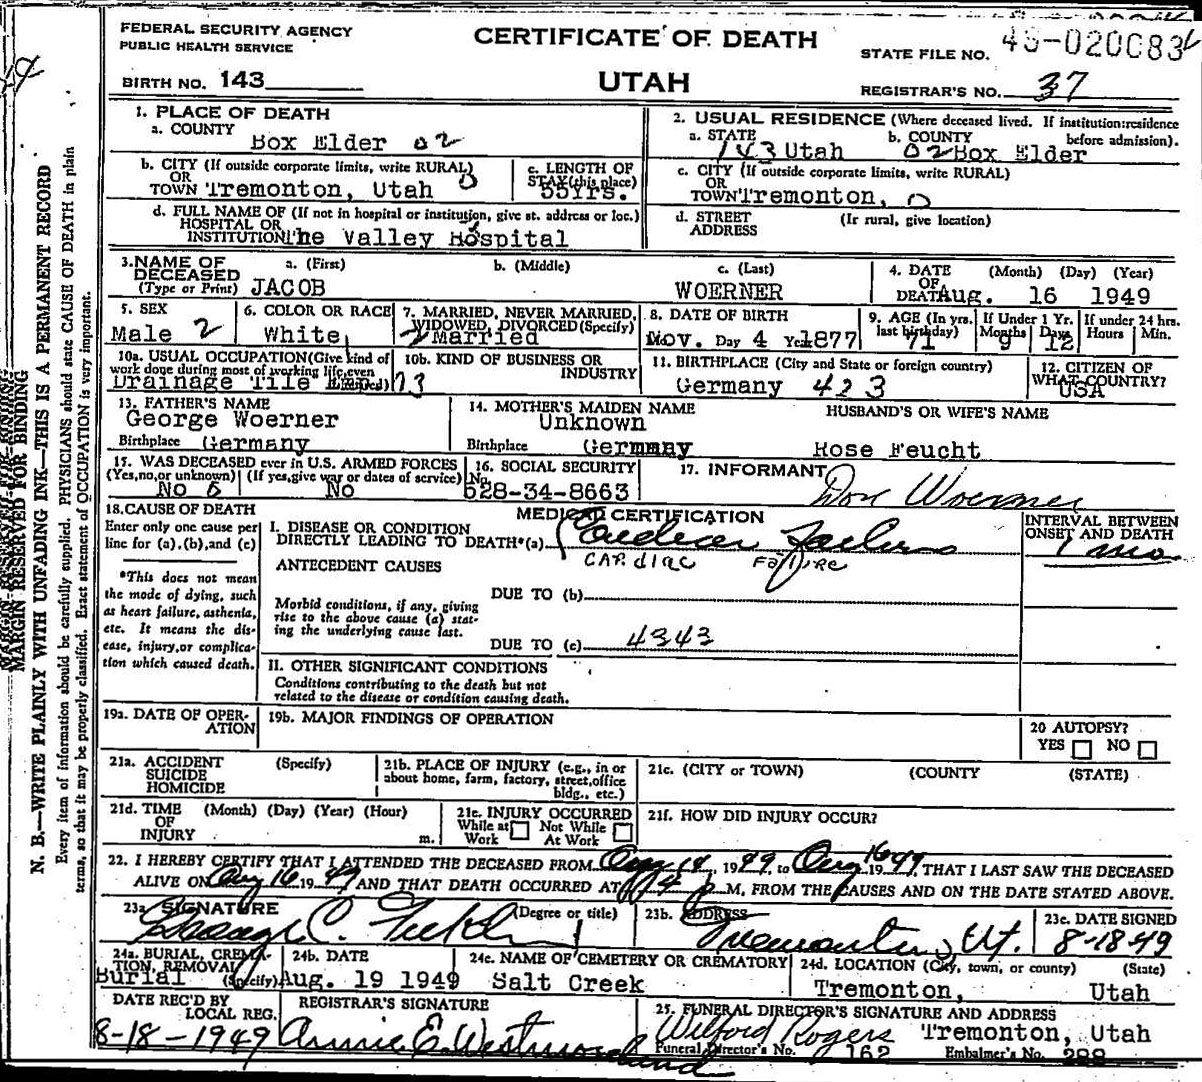 FEDERAL SECURITY AGENCY
PUBLIC HEALTH SERVICE
CERTIFICATE OF DEATH
STATE FILE NO.
BIRTH NO. 143
UTAH
REGISTRAR'S NO. 37
1. PLACE OF DEATH
a. COUNTY
Box Elder 02
2. USUAL RESIDENCE (Where deceased lived. If institution:residence before admission).
a. STATE b. COUNTY
143 Utah 02 Box Elder
b. CITY (If outside corporate limits, write RURAL)
OR
TOWN Tremonton, Utah 0
c. LENGTH OF
STAY (this place)
55Yrs.
c. CITY (If outside corporate limits, write RURAL)
OR
TOWN Tremonton, 0
d. FULL NAME OF (If not in hospital or institution, give st. address or loc.)
HOSPITAL OR
INSTITUTION The Valley Hospital
d. STREET (If rural, give location)
ADDRESS
3. NAME OF
DECEASED
(Type or Print)
a. (First) b. (Middle) c. (Last)
JACOB WOERNER
4. DATE (Month) (Day) (Year)
OF
DEATH Aug. 16 1949
5. SEX
Male 2
6. COLOR OR RACE
White
7. MARRIED, NEVER MARRIED,
WIDOWED, DIVORCED (Specify)
2 Married
8. DATE OF BIRTH
Nov. Day 4 Year 1877
9. AGE (In yrs. last birthday)
71
If Under 1 Yr.
Months Days
9 12
If under 24 hrs.
Hours Min.
10a. USUAL OCCUPATION (Give kind of
work done during most of working life, even
Drainage Tile
10b. KIND OF BUSINESS OR
INDUSTRY
11. BIRTHPLACE (City and State or foreign country)
Germany 423
12. CITIZEN OF
WHAT COUNTRY?
USA
13. FATHER'S NAME
George Woerner
Birthplace Germany
14. MOTHER'S MAIDEN NAME
Unknown
Birthplace Germany
HUSBAND'S OR WIFE'S NAME
Rose Feucht
15. WAS DECEASED ever in U.S. ARMED FORCES
(Yes,no,or unknown) (If yes, give war or dates of service)
No 0 No
16. SOCIAL SECURITY
No.
528-34-8663
17. INFORMANT
Don Woerner
18. CAUSE OF DEATH
Enter only one cause per
line for (a),(b),and (c)
MEDICAL CERTIFICATION
INTERVAL BETWEEN
ONSET AND DEATH
I. DISEASE OR CONDITION
DIRECTLY LEADING TO DEATH*(a) Cardiac Failure
1 mo
CARdiac FAilure
*This does not mean
the mode of dying, such
as heart failure, asthenia,
etc. It means the dis-
ease, injury, or complica-
tion which caused death.
ANTECEDENT CAUSES
DUE TO (b)
Morbid conditions, if any, giving
rise to the above cause (a) stat-
ing the underlying cause last.
DUE TO (c) 4343
II. OTHER SIGNIFICANT CONDITIONS
Conditions contributing to the death but not
related to the disease or condition causing death.
19a. DATE OF OPER-
ATION
19b. MAJOR FINDINGS OF OPERATION
20 AUTOPSY?
YES NO
21a. ACCIDENT (Specify)
SUICIDE
HOMICIDE
21b. PLACE OF INJURY (e.g., in or
about home, farm, factory, street, office
bldg., etc.)
21c. (CITY or TOWN) (COUNTY) (STATE)
21d. TIME (Month) (Day) (Year) (Hour)
OF
INJURY m.
21e. INJURY OCCURRED
While at Work Not While At Work
21f. HOW DID INJURY OCCUR?
22. I HEREBY CERTIFY THAT I ATTENDED THE DECEASED FROM Aug 14, 1949, to Aug 16 1949, THAT I LAST SAW THE DECEASED
ALIVE ON Aug 16 1949 AND THAT DEATH OCCURRED AT P M, FROM THE CAUSES AND ON THE DATE STATED ABOVE.
23a. SIGNATURE (Degree or title)
George C.
23b. ADDRESS
Tremonton, Ut.
23c. DATE SIGNED
8-18-49
24a. BURIAL, CREMA-
TION, REMOVAL
Burial (Specify)
24b. DATE
Aug. 19 1949
24c. NAME OF CEMETERY OR CREMATORY
Salt Creek
24d. LOCATION (City, town, or county) (State)
Tremonton, Utah
DATE REC'D BY
LOCAL REG.
8-18-1949
REGISTRAR'S SIGNATURE
Annie E. Westmoreland
25. FUNERAL DIRECTOR'S SIGNATURE AND ADDRESS
Wilford Rogers Tremonton, Utah
Funeral Director's No. 162 Embalmer's No. 299
N. B.—WRITE PLAINLY WITH UNFADING INK—THIS IS A PERMANENT RECORD
MARGIN RESERVED FOR BINDING
Every item of information should be carefully supplied. PHYSICIANS should state CAUSE OF DEATH in plain
terms, so that it may be properly classified. Exact statement of OCCUPATION is very important.